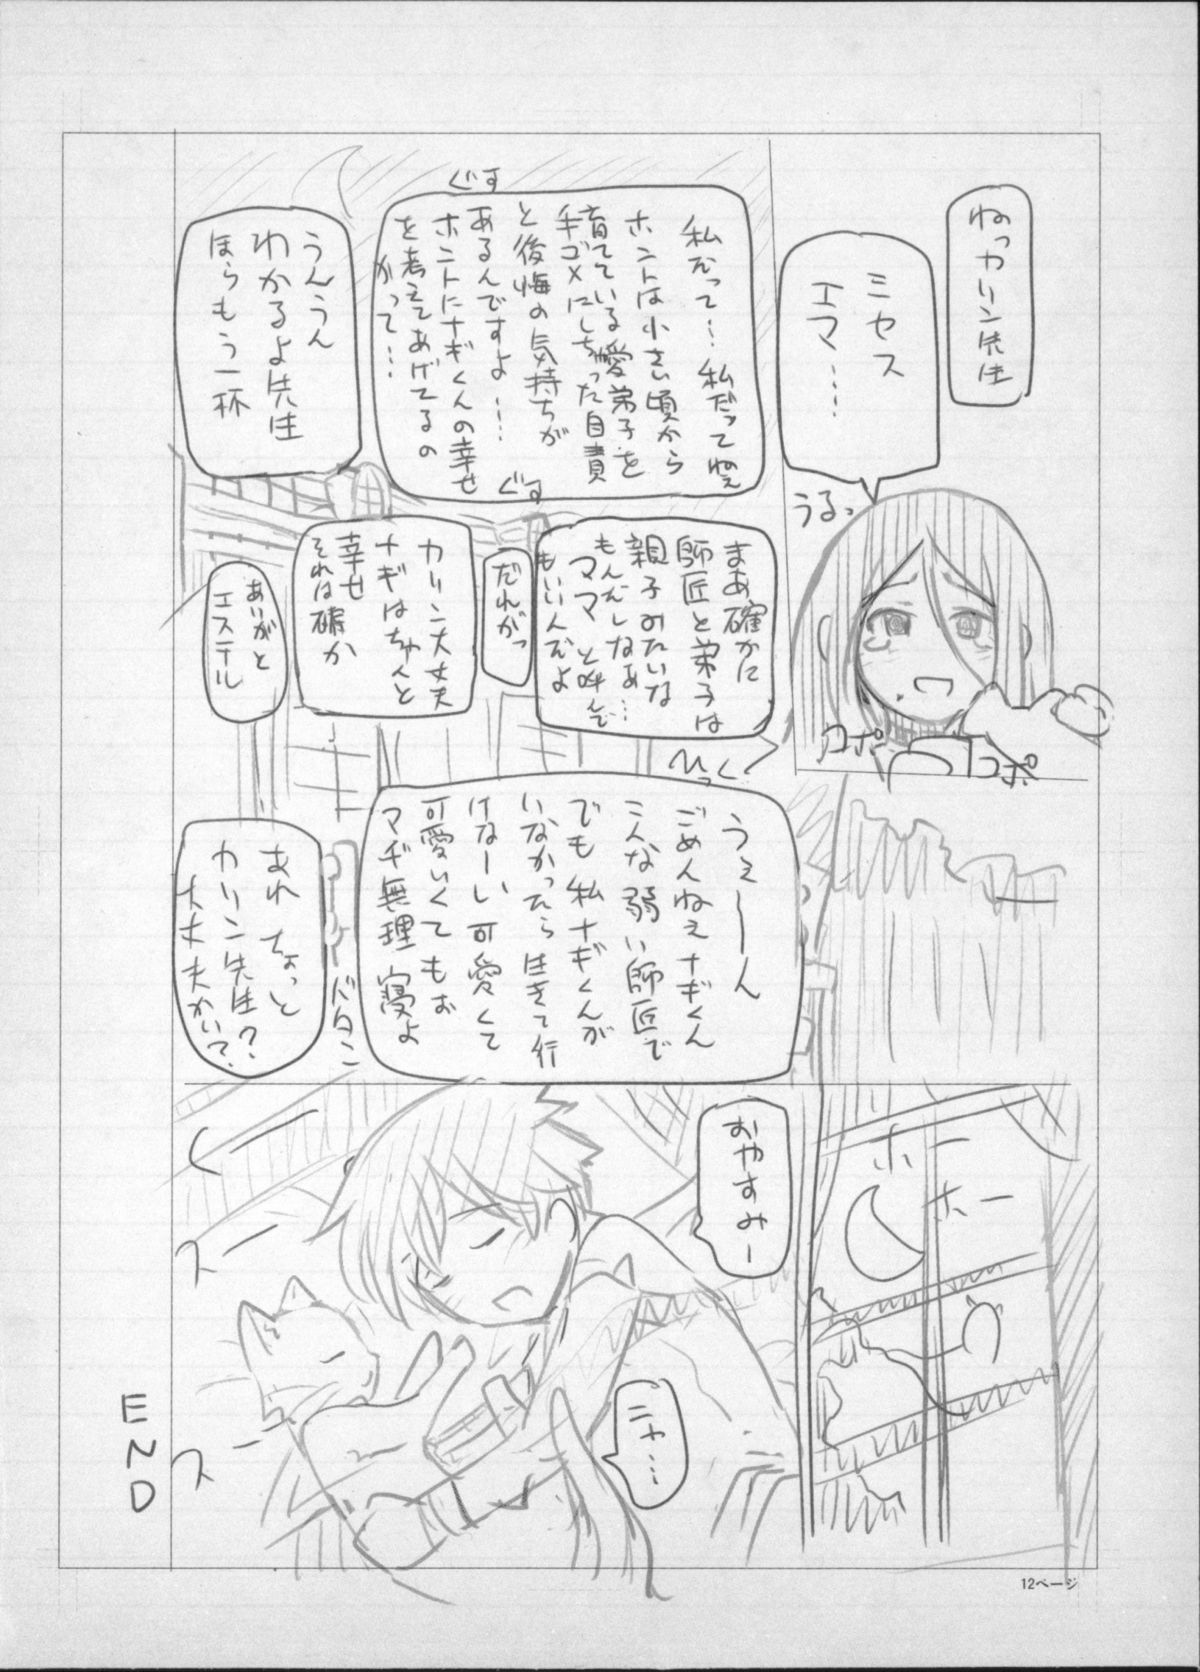 ねっカリン先生
ミセス
エマ……
うるっ
コポ
コポ
ぐす
私だって…私だってねぇ
ホントは小さい頃から
育てている愛弟子を
手ゴメにしちゃった自責
と後悔の気持ちが
あるんですよ……
ホントにナギくんの幸せ
を考えてあげてるの
かって……
ぐす
うんうん
わかるよ先生
ほらもう一杯
まあ確かに
師匠と弟子は
親子みたいな
もんだしなぁ…
ママ と呼んで
もいいんだよ
だれがっ
カリン大丈夫
ナギはちゃんと
幸せ
それは確か
あいがと
エステル
ひっく
うぇーん
ごめんねぇナギくん
こんな弱い師匠で
でも私ナギくんが
いなかったら生きて行
けなーい可愛くて
可愛いくてもぉ
マヂ無理 寝よ
バタン
あれ ちょっと
カリン先生?
大丈夫かい?
ホー
ホー
おやすみー
ニャ…
くー
スー
スー
END
12ページ